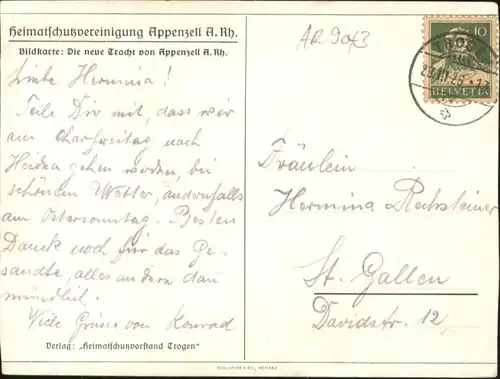 Heimatschutzvereinigung Appenzell A. Rh.
Bildkarte: Die neue Tracht von Appenzell A. Rh.
Liebe Hermina!
Teile Dir mit, dass wir
am Charfreitag nach
Heiden gehen werden, bei
schönem Wetter, andernfalls
am Ostersonntag. Besten
Dank noch für das Ge-
sandte, alles andere dann
mündlich.
Viele Grüsse von Konrad
Verlag: „Heimatschutzvorstand Trogen"
AR 9043
10
HELVETIA
Fräulein
Hermina Rechsteiner
St. Gallen
Davidstr. 12,